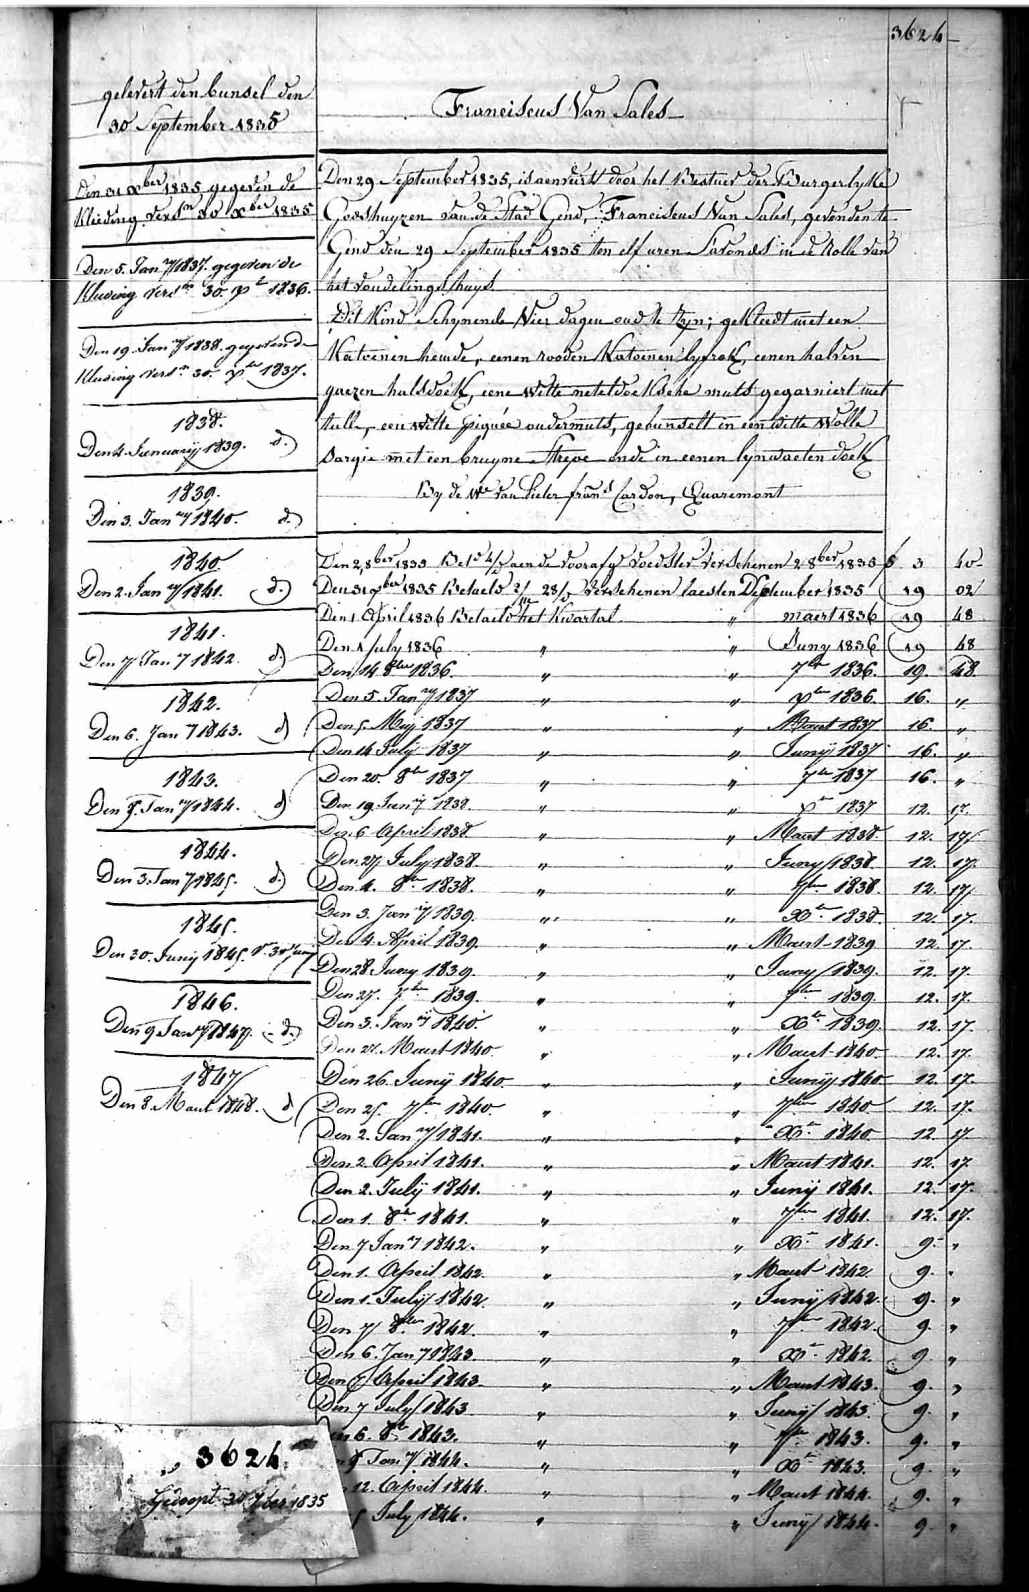 3624
gelevert den bunsel den
30 September 1835
Den 31 Xber 1835 gegeven de
Kleeding versn 30 Xber 1835
Den 5. Jany 1837. gegeven de
Kleeding versn 30. Xr 1836.
Den 19. Jany 1838. gegeven de
Kleeding versn 30. Xr 1837.
1838.
Den 4 January 1839. d.)
1839.
Den 3. Jany 1840. d.)
1840.
Den 2. Jany 1841. d.)
1841.
Den 7 Jany 1842. d)
1842.
Den 6. Jany 1843. d)
1843.
Den 9. Jany 1844. d)
1844.
Den 3. Jany 1845. d.)
1845.
Den 30. Juny 1845. V. 30 Juny
1846.
Den 9 Jany 1847. d.)
1847
Den 8 Maert 1848. d)
Franciscus Van Sales
Den 29 September 1835, is aenveirt door het Bestuer der Burgerlyke
Godshuyzen van de Stad Gend, Franciscus Van Sales, gevonden te
Gend den 29 September 1835 ten elf uren Savonds in de Rolle van
het vondelings huys
Dit Kind Schynende Vier dagen oud te Zyn; gekleedt met een
Katoenen hemde, eenen rooden Katoenen lyfrok, eenen halven
gaezen halsdoek, eene witte neteldoeksche muts gegarniert met
tulle, een witte piquée ondermuts, gebunselt in een witte Wolle
Sargie met een bruyne Strepe ende in eenen lynwaeten doek
By de We van Pieter frans Cardon, Quaremont
Den 2, 8ber 1835 Bet aen de voorafg voedster verschenen 2 8ber 1835 f 3 40
Den 31 Xber 1835 Betaeld 2/m 28/d Verschenen laesten December 1835 19 02
Den 1 April 1836 Betaeld het Kwartal " maert 1836 19 48
Den 1 July 1836 " " Juny 1836 19 48
Den 14 8ber 1836. " " 7ber 1836. 19. 48
Den 5. Jany 1837 " " Xber 1836. 16. "
Den 5. Mey 1837 " " Maert 1837 16. "
Den 14 July 1837 " " Juny 1837 16. "
Den 20 8br 1837 " " 7br 1837 16. "
Den 19 Jany 1838. " " Xr 1837 12. 17.
Den 6 April 1838. " " Maert 1838. 12. 17.
Den 27 July 1838. " " Juny 1838 12. 17.
Den 4. 8br 1838. " " 7ber 1838. 12. 17.
Den 3. Jany 1839. " " Xbr 1838. 12. 17.
Den 4 April 1839. " " Maert 1839 12. 17.
Den 28 Juny 1839. " " Juny 1839. 12. 17.
Den 27. 7ber 1839. " " 7ber 1839. 12. 17.
Den 3. Jany 1840. " " Xbr 1839. 12. 17.
Den 27. Maert 1840. " " Maert 1840. 12. 17.
Den 26. Juny 1840. " " Juny 1840 12. 17.
Den 25. 7br 1840. " " 7ber 1840 12. 17.
Den 2. Jany 1841. " " Xbr 1840 12. 17.
Den 2. April 1841. " " Maert 1841. 12. 17.
Den 2. July 1841. " " Juny 1841. 12. 17.
Den 1. 8br 1841. " " 7ber 1841. 12. 17.
Den 7 Jany 1842. " " Xbr 1841. 9. "
Den 1. April 1842. " " Maert 1842 9. "
Den 1. July 1842. " " Juny 1842. 9. "
Den 7 8ber 1842. " " 7ber 1842 9. "
Den 6. Jany 1843 " " Xbr 1842. 9. "
Den 6 April 1843. " " Maert 1843. 9. "
Den 7 July 1843 " " Juny 1843. 9. "
6. 8br 1843. " " 7br 1843. 9. "
9 Jany 1844. " " Xbr 1843. 9. "
12. April 1844. " " Maert 1844. 9. "
5 July 1844. " " Juny 1844. 9. "
3624.
Gedoopt 30 7ber 1835